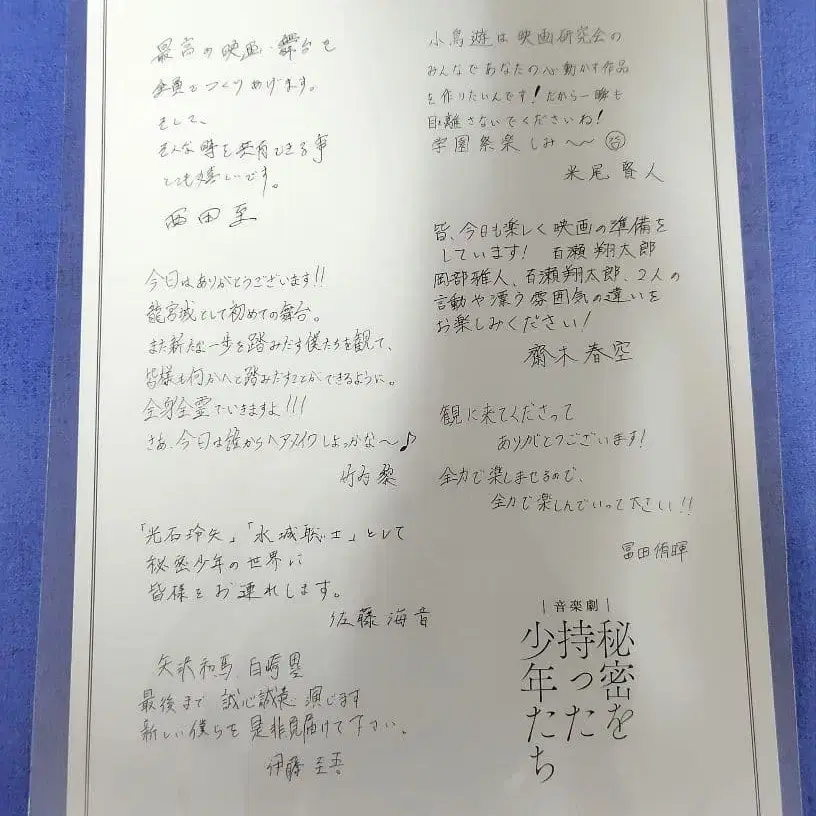 最高の映画・舞台を
全員でつくりあげます。
そして、
そんな時を共有できる事
とても嬉しいです。
西田至
今日はありがとうございます!!
龍宮城として初めての舞台。
また新たな一歩を踏みだす僕たちを観て、
皆様も何かへと踏みだすことができるように。
全身全霊でいきますよ!!!
さあ、今日は誰からヘアメイクしよっかな〜♪
竹内黎
「光石玲矢」「水城聡士」として
秘密少年の世界に
皆様をお連れします。
佐藤海音
矢沢和馬、白崎塁
最後まで 誠心誠意 演じます
新しい僕らを是非見届けて下さい。
伊藤圭吾
小鳥遊は映画研究会の
みんなであなたの心動かす作品
を作りたいんです!だから一瞬も
目離さないでくださいね!
学園祭楽しみ〜〜
米尾賢人
皆、今日も楽しく映画の準備を
しています! 百瀬翔太郎
岡部雅人、百瀬翔太郎、2人の
言動や漂う雰囲気の違いを
お楽しみください!
齋木春空
観に来てくださって
ありがとうございます!
全力で楽しませるので、
全力で楽しんでいって下さい!!
冨田侑暉
音楽劇
秘密を
持った
少年たち